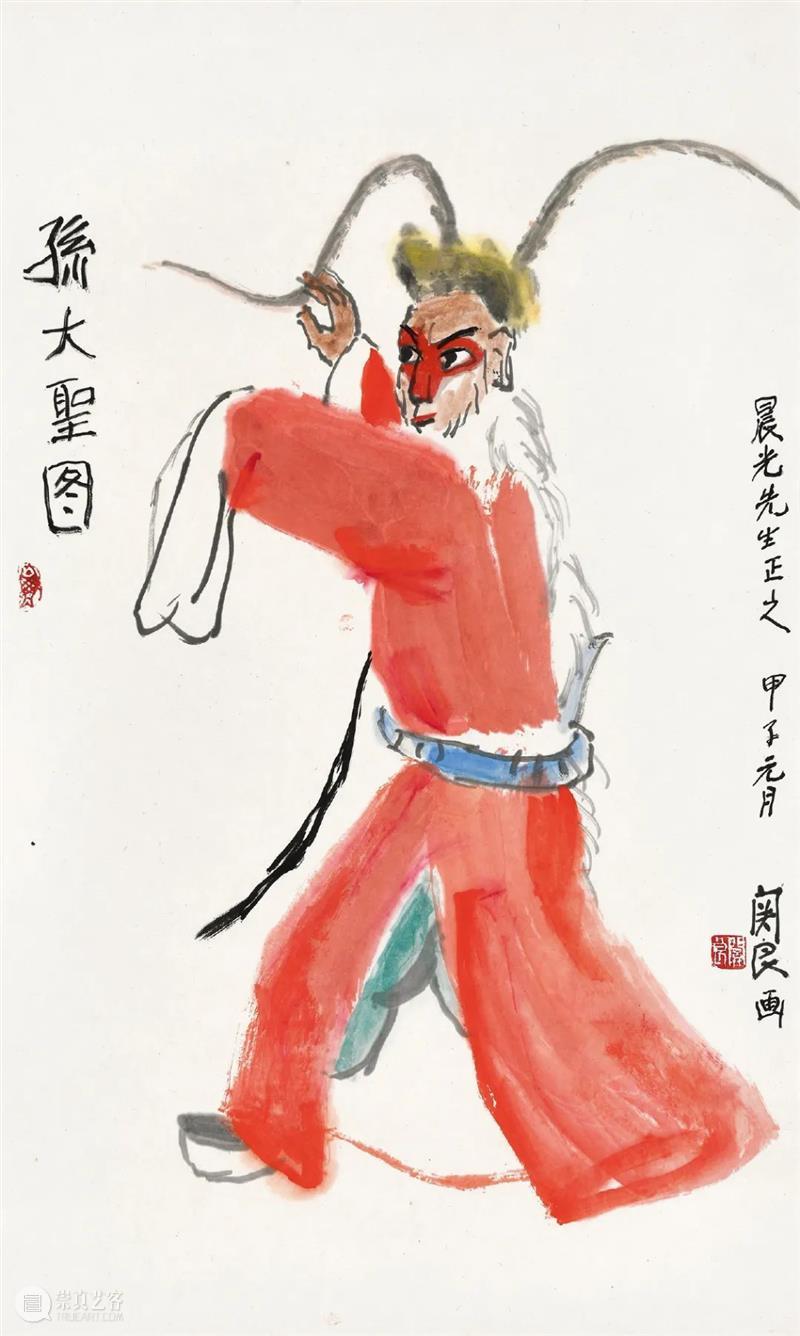 孫大聖图
晨光先生正之 甲子元月
関良画
崇真艺客
TRUEART.COM